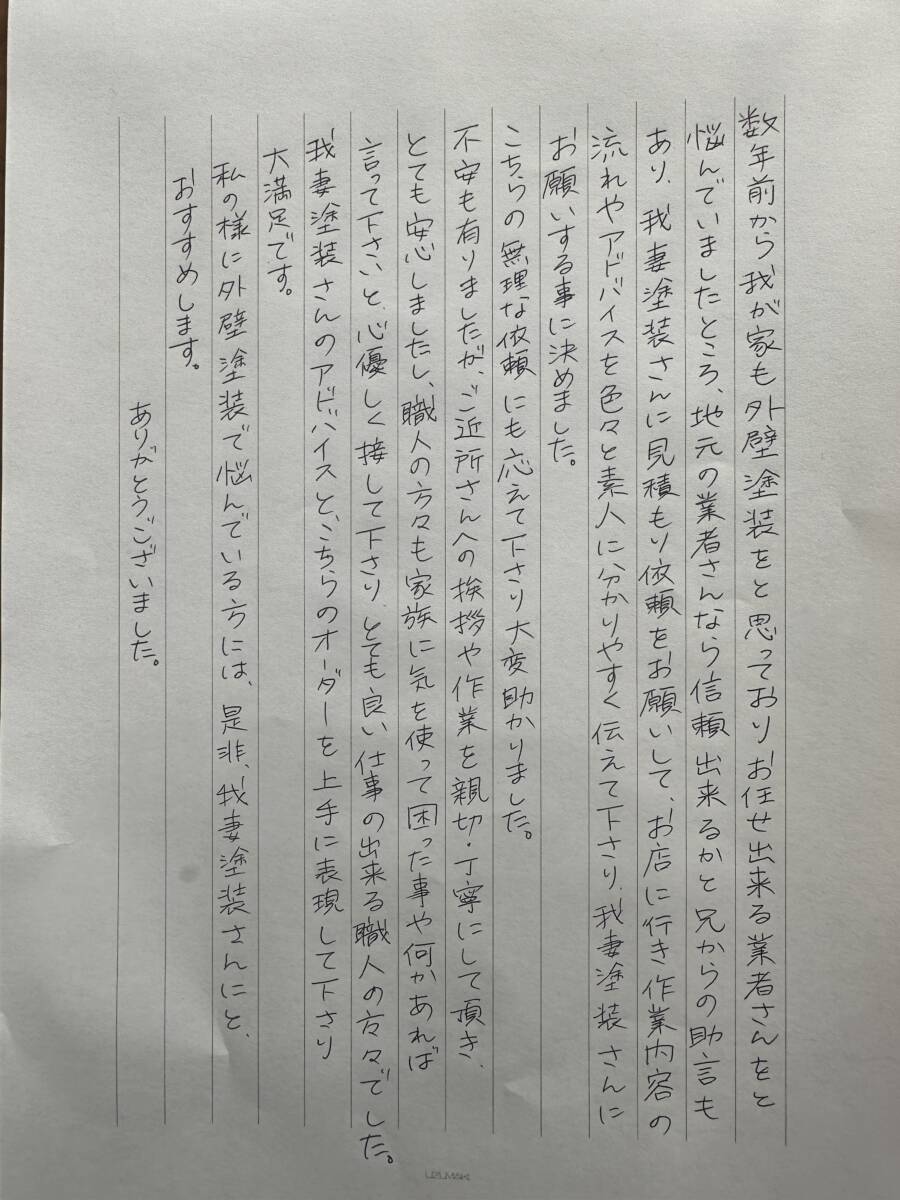 数年前から我が家も外壁塗装をと思っておりお任せ出来る業者さんをと
悩んでいましたところ、地元の業者さんなら信頼出来るかと兄からの助言も
あり、我妻塗装さんに見積もり依頼をお願いして、お店に行き作業内容の
流れやアドバイスを色々と素人に分かりやすく伝えて下さり、我妻塗装さんに
お願いする事に決めました。
こちらの無理な依頼にも応えて下さり大変助かりました。
不安も有りましたが、ご近所さんへの挨拶や作業を親切・丁寧にして頂き、
とても安心しましたし、職人の方々も家族に気を使って困った事や何かあれば
言って下さいと、心優しく接して下さり、とても良い仕事の出来る職人の方々でした。
我妻塗装さんのアドバイスと、こちらのオーダーを上手に表現して下さり
大満足です。
私の様に外壁塗装で悩んでいる方には、是非、我妻塗装さんにと、
おすすめします。
ありがとうございました。